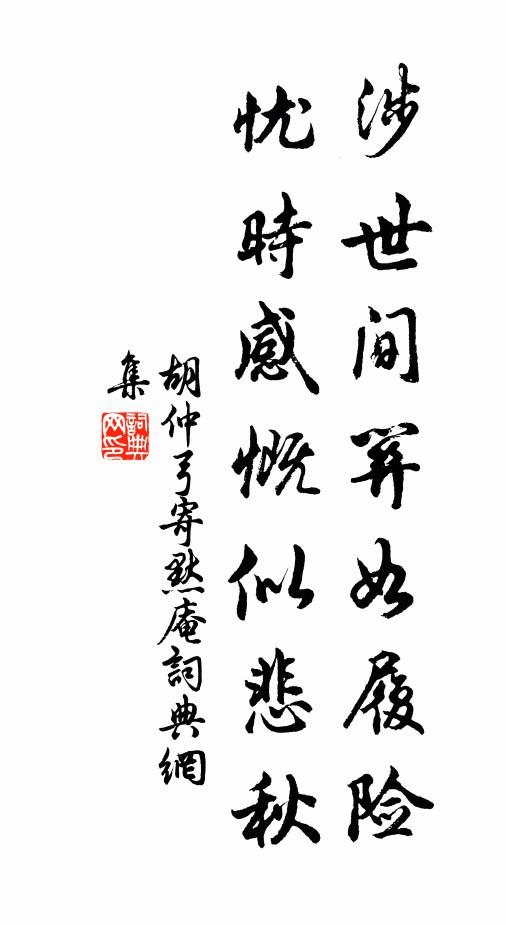 涉世间关如履险
忧時感慨似悲秋
胡仲弓寄默庵詞典網
集
詞典
网印